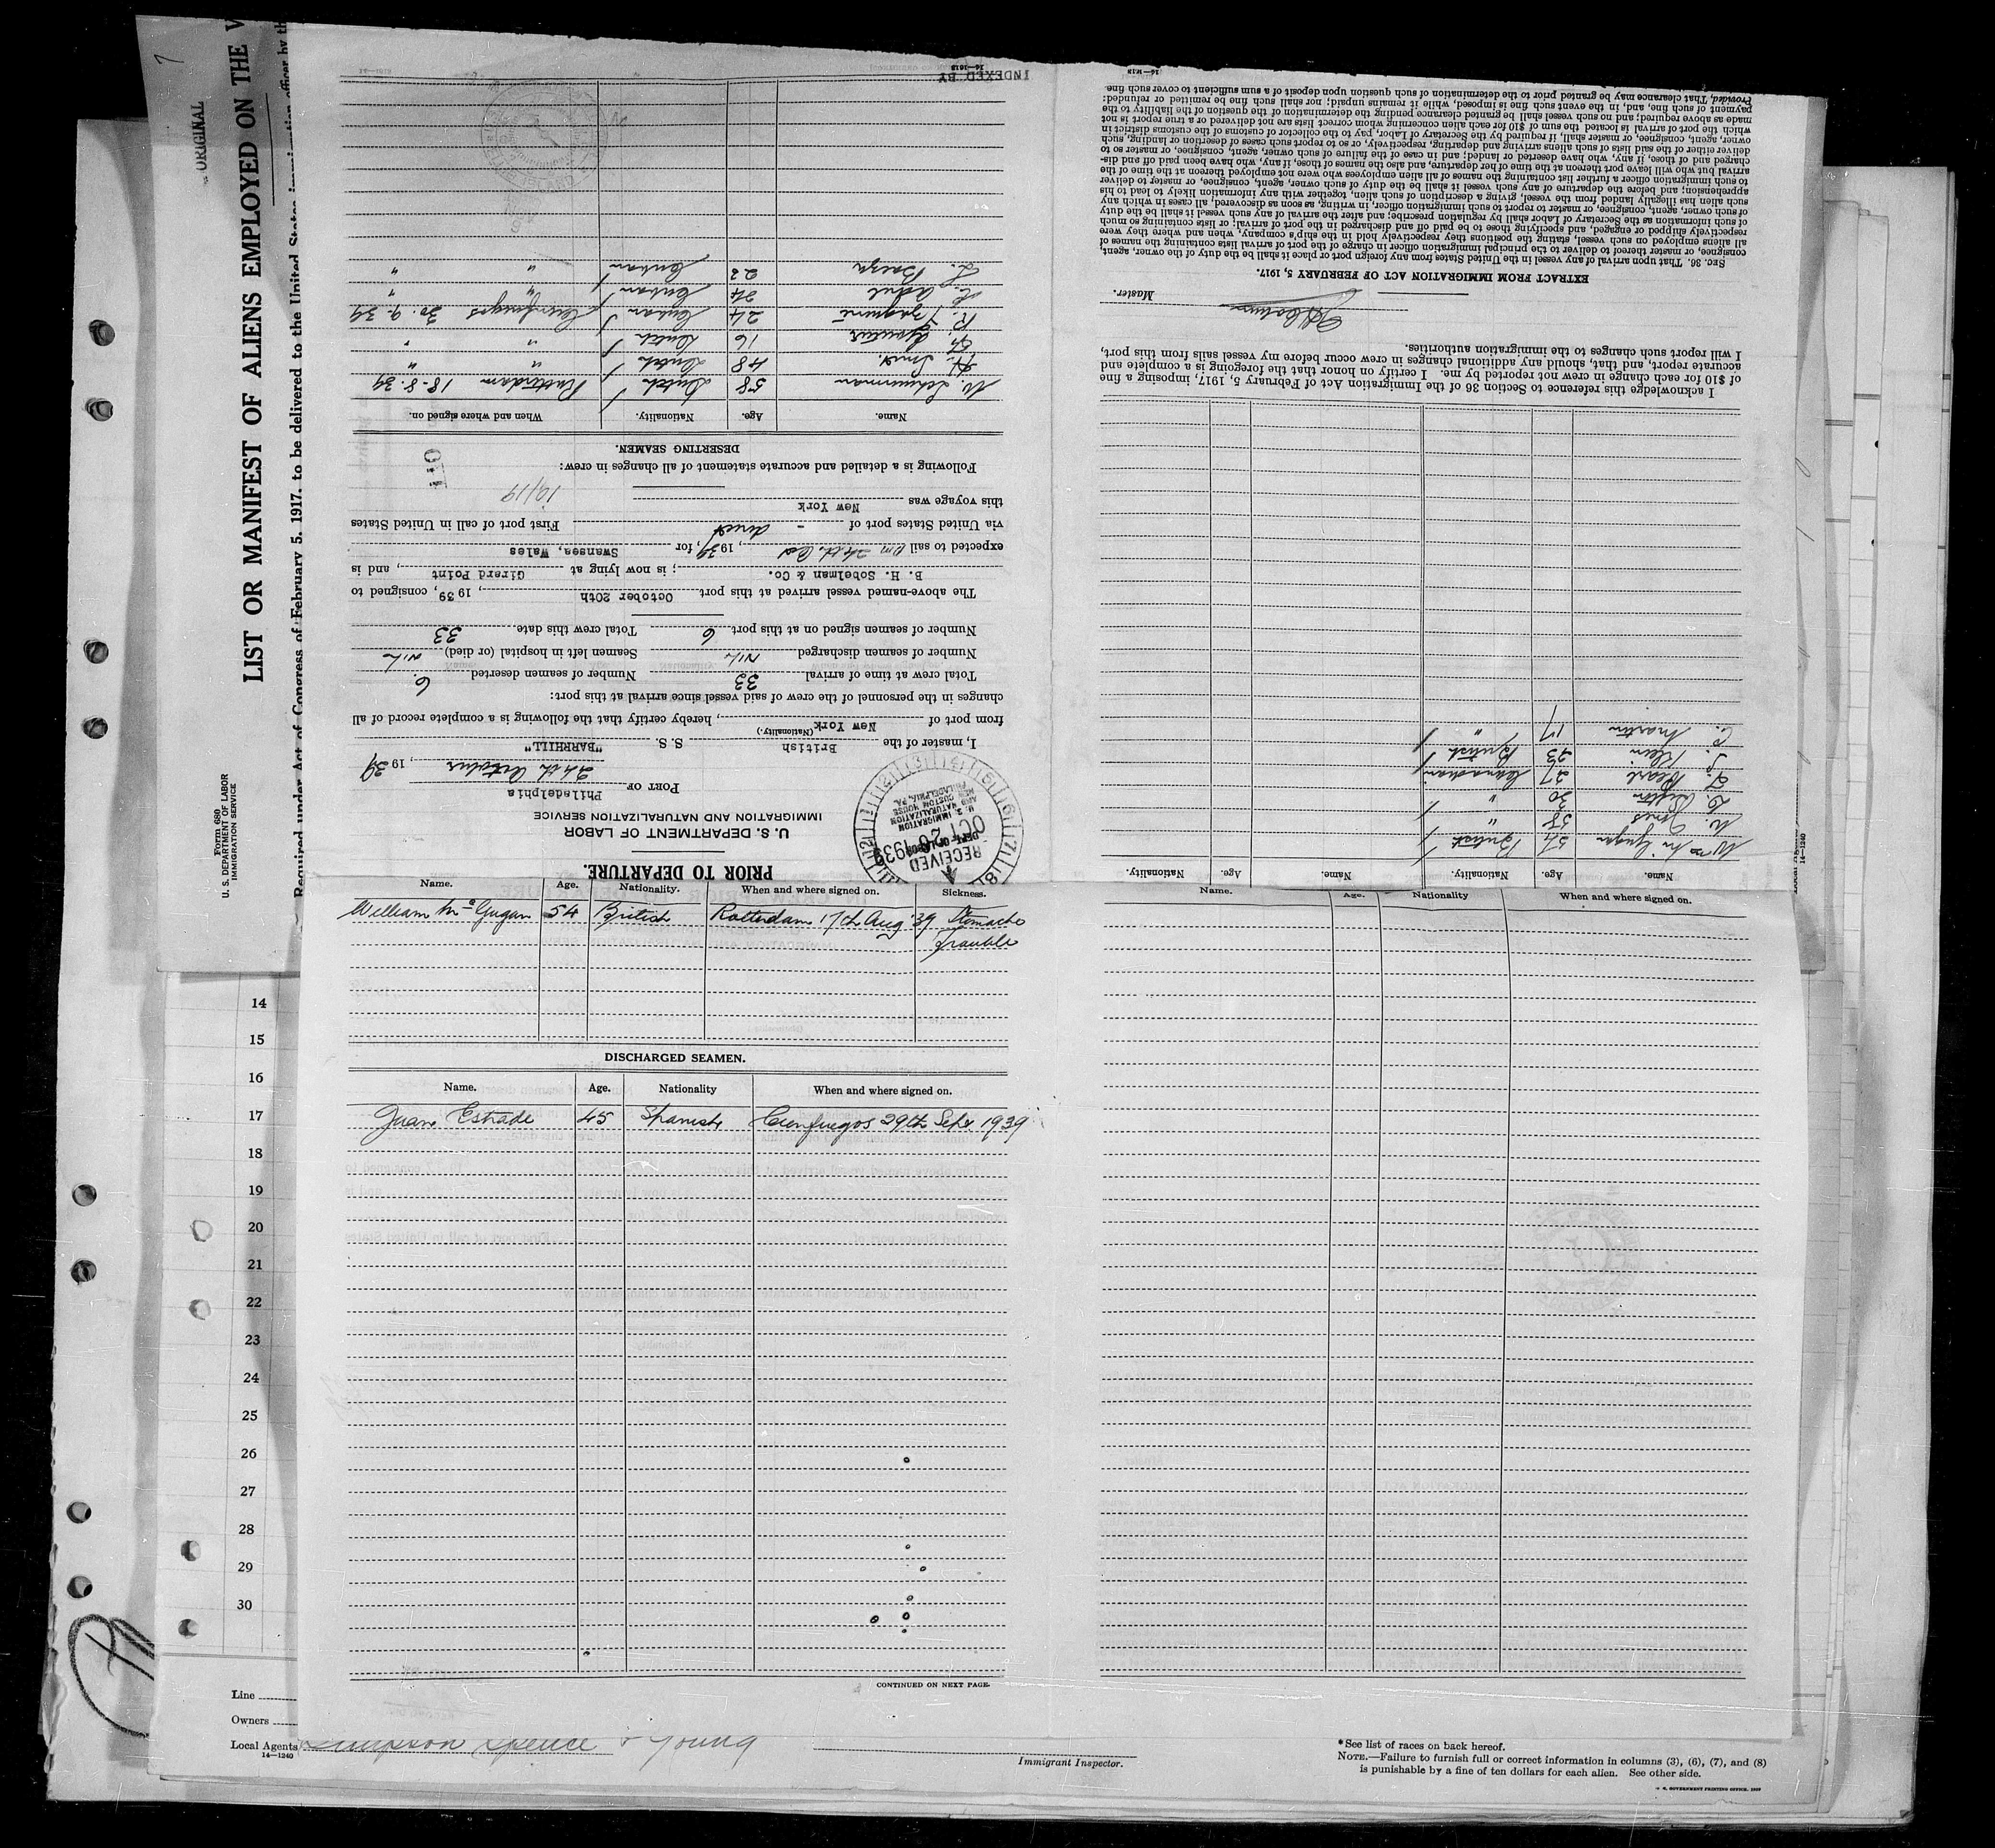 ORIGINAL
LIST OR MANIFEST OF ALIENS EMPLOYED ON THE V
Required under Act of Congress of February 5, 1917, to be delivered to the United States immigration officer by th
Form 680
U. S. DEPARTMENT OF LABOR
IMMIGRATION SERVICE
PRIOR TO DEPARTURE.
U. S. DEPARTMENT OF LABOR
IMMIGRATION AND NATURALIZATION SERVICE
RECEIVED
OCT 26 1939
PORT OF Philadelphia
24th October, 1939
I, master of the British S. S. "BARRHILL"
(Nationality.)
from port of New York, hereby certify that the following is a complete record of all
changes in the personnel of the crew of said vessel since arrival at this port:
Total crew at time of arrival 33 Number of seamen deserted 6.
Number of seamen discharged NIL Seamen left in hospital (or died) NIL
Number of seamen signed on at this port 6 Total crew this date 33
The above-named vessel arrived at this port October 20th, 1939, consigned to
B. H. Sobelman & Co.; is now lying at Girard Point, and is
expected to sail 24th Oct, 1939, for Swansea, Wales
via United States port of - direct First port of call in United States
this voyage was New York
10/19
Following is a detailed and accurate statement of all changes in crew:
110
DESERTING SEAMEN.
Name. Age. Nationality. When and where signed on.
W. Schuurman 58 Dutch Rotterdam 18-8-39
H. Smit. 48 Dutch " "
16 Dutch " "
R. 24 Cuban Cienfuegos 30.9.39
24 Cuban " "
22 Cuban " "
INDEXED BY
16—1618
Name. Age. Nationality. Name. Age. Nationality.
Wm Mc Gugan 54 British
W. Jones 58 "
30 "
27 Canadian
J. Klein 23 British
C. Martin 17 "
I acknowledge this reference to Section 36 of the Immigration Act of February 5, 1917, imposing a fine
of $10 for each change in crew not reported by me. I certify on honor that the foregoing is a complete and
accurate report, and that, should any additional changes in crew occur before my vessel sails from this port,
I will report such changes to the immigration authorities.
Master.
EXTRACT FROM IMMIGRATION ACT OF FEBRUARY 5, 1917.
SEC. 36. That upon arrival of any vessel in the United States from any foreign port or place it shall be the duty of the owner, agent,
consignee, or master thereof to deliver to the principal immigration officer in charge of the port of arrival lists containing the names of
all aliens employed on such vessel, stating the positions they respectively hold in the ship's company, when and where they were
respectively shipped or engaged, and specifying those to be paid off and discharged in the port of arrival; or lists containing so much
of such information as the Secretary of Labor shall by regulation prescribe; and after the arrival of any such vessel it shall be the duty
of such owner, agent, consignee, or master to report to such immigration officer, in writing, as soon as discovered, all cases in which any
such alien has illegally landed from the vessel, giving a description of such alien, together with any information likely to lead to his
apprehension; and before the departure of any such vessel it shall be the duty of such owner, agent, consignee, or master to deliver
to such immigration officer a further list containing the names of all alien employees who were not employed thereon at the time of the
arrival but who will leave port thereon at the time of her departure, and also the names of those, if any, who have been paid off and dis-
charged and of those, if any, who have deserted or landed; and in case of the failure of such owner, agent, consignee, or master so to
deliver either of the said lists of such aliens arriving and departing, respectively, or so to report such cases of desertion or landing, such
owner, agent, consignee, or master shall, if required by the Secretary of Labor, pay to the collector of customs of the customs district in
which the port of arrival is located the sum of $10 for each alien concerning whom correct lists are not delivered or a true report is not
made as above required; and no such vessel shall be granted clearance pending the determination of the question of the liability to the
payment of such fine, and, in the event such fine is imposed, while it remains unpaid; nor shall such fine be remitted or refunded:
Provided, That clearance may be granted prior to the determination of such question upon deposit of a sum sufficient to cover such fine.
Name. Age. Nationality. When and where signed on. Sickness.
William Mc Gugan 54 British Rotterdam 17th Aug '39 Stomache
Trouble
DISCHARGED SEAMEN.
Name. Age. Nationality When and where signed on.
Juan Estrade 45 Spanish Cienfuegos 29th Sept 1939
CONTINUED ON NEXT PAGE.
Name. Age. Nationality When and where signed on.
14
15
16
17
18
19
20
21
22
23
24
25
26
27
28
29
30
Line
Owners
Local Agents Simpson Spence & Young
14—1240
Immigrant Inspector.
*See list of races on back hereof.
NOTE.—Failure to furnish full or correct information in columns (3), (6), (7), and (8)
is punishable by a fine of ten dollars for each alien. See other side.